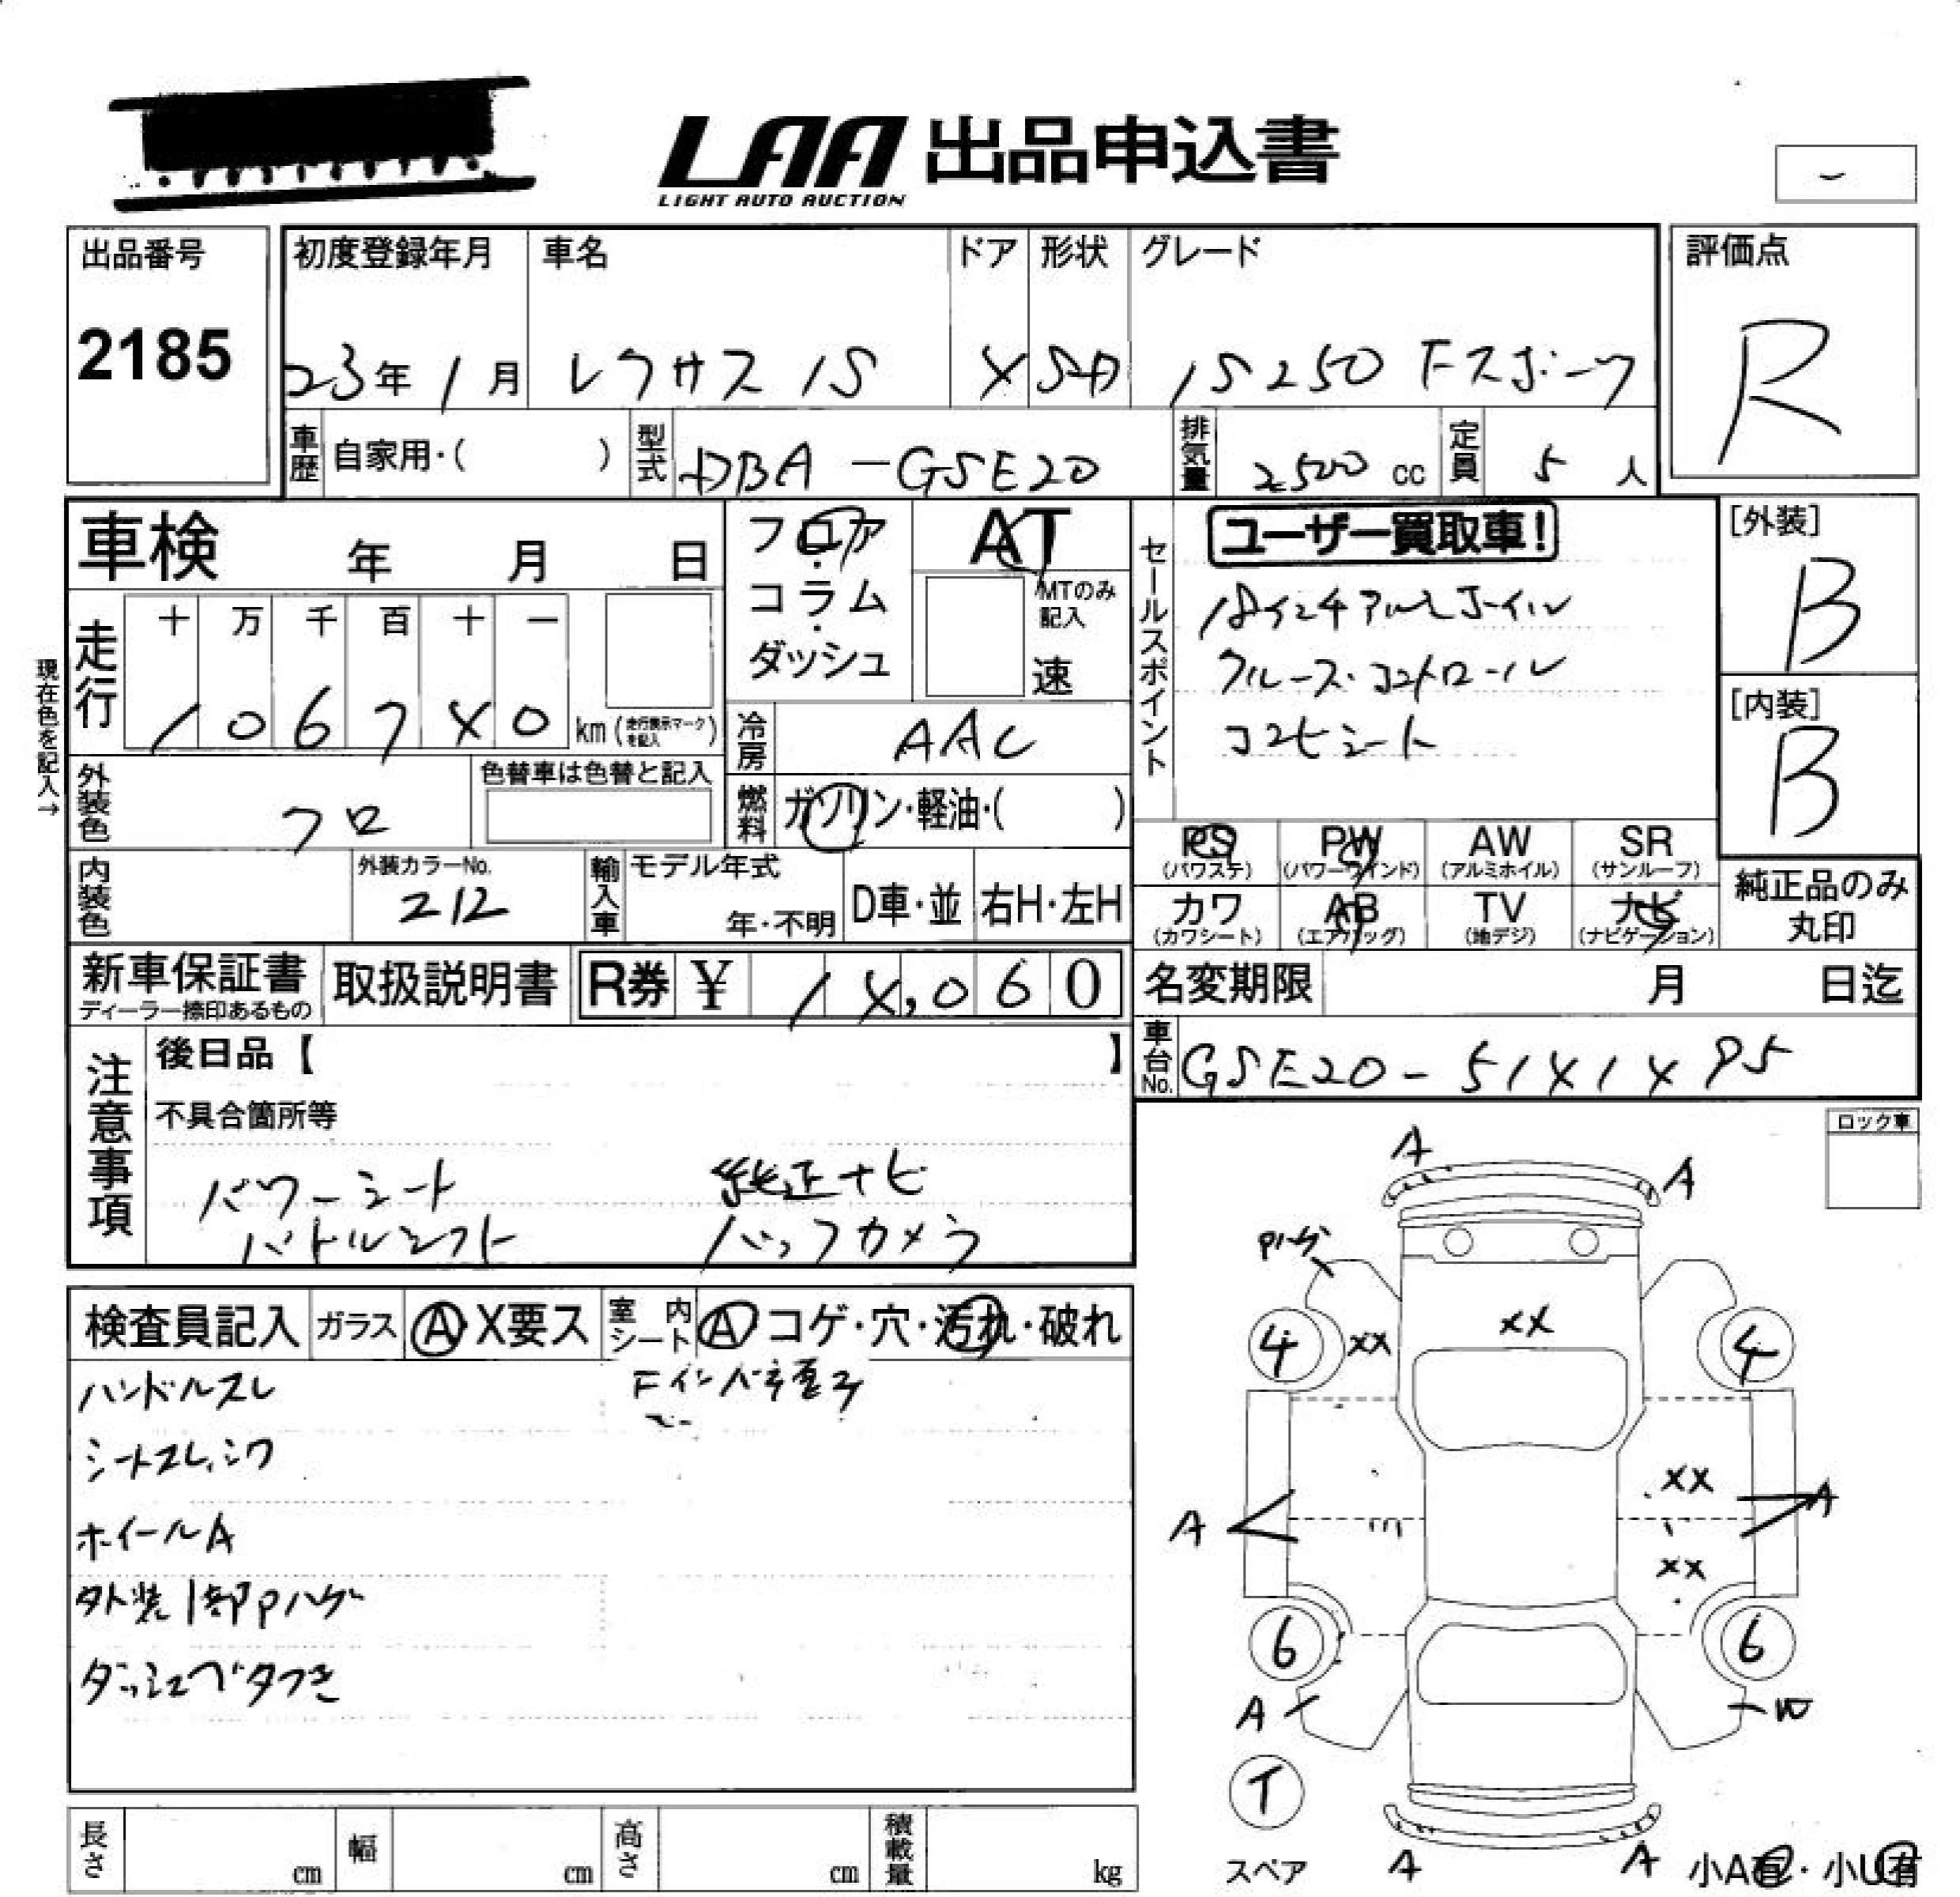 LAA 出品申込書
LIGHT AUTO AUCTION
出品番号
2185
初度登録年月
23年1月
車名
レクサス IS
ドア
4
形状
SD
グレード
IS250 Fスポーツ
評価点
R
車歴
自家用・( )
型式
DBA-GSE20
排気量
2500 cc
定員
5 人
車検 年 月 日
フロア
・
コラム
・
ダッシュ
AT
MTのみ記入
速
セールスポイント
ユーザー買取車!
18インチアルミホイル
クルーズ・コントロール
コンビシート
[外装]
B
[内装]
B
現在色を記入→
走行
十 万 千 百 十 一
1 0 6 7 4 0 km (走行表示マークを記入)
冷房
AAC
外装色
クロ
色替車は色替と記入
燃料
ガソリン・軽油・( )
PS (パワステ)
PW (パワーウインド)
AW (アルミホイル)
SR (サンルーフ)
カワ (カワシート)
AB (エアバッグ)
TV (地デジ)
ナビ (ナビゲーション)
純正品のみ
丸印
内装色
外装カラーNo.
212
輸入車
モデル年式
年・不明
D車・並
右H・左H
新車保証書
ディーラー捺印あるもの
取扱説明書
R券 ¥ 14,060
名変期限 月 日迄
車台No.
GSE20-5141495
注意事項
後日品【 】
不具合箇所等
パワーシート 純正ナビ
パドルシフト バックカメラ
ロック車
検査員記入
ガラス
A X要ス
室内シート
A コゲ・穴・汚れ・破れ
ハンドルスレ
シートスレ、シワ
ホイールA
外装1部Pハゲ
ダッシュベタつき
A
A
Pハゲ
4
XX
XX
4
XX
A
A
XX
6
6
A
W
T
スペア
A
A
小A有・小U有
長さ cm
幅 cm
高さ cm
積載量 kg